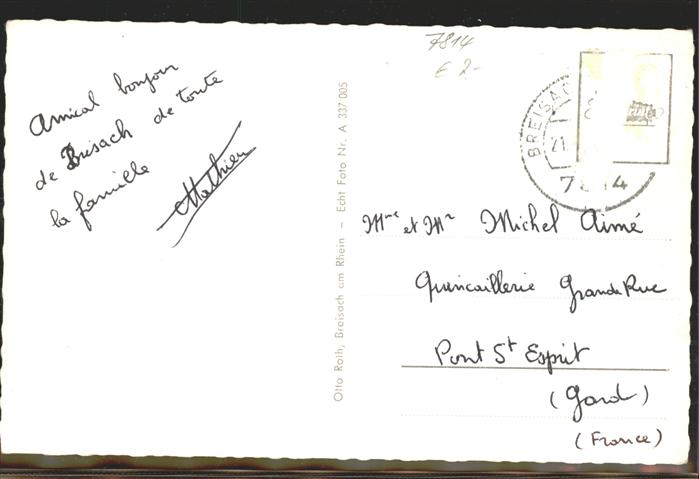 7814
€ 2-
Amical bonjour
de Breisach de toute
la famille
Mathieu
Otto Roth, Breisach am Rhein – Echt Foto Nr. A 337 005
BREISACH
21
7814
Mme et Mr Michel Aimé
Quincaillerie Grande Rue
Pont St Esprit
(Gard)
(France)